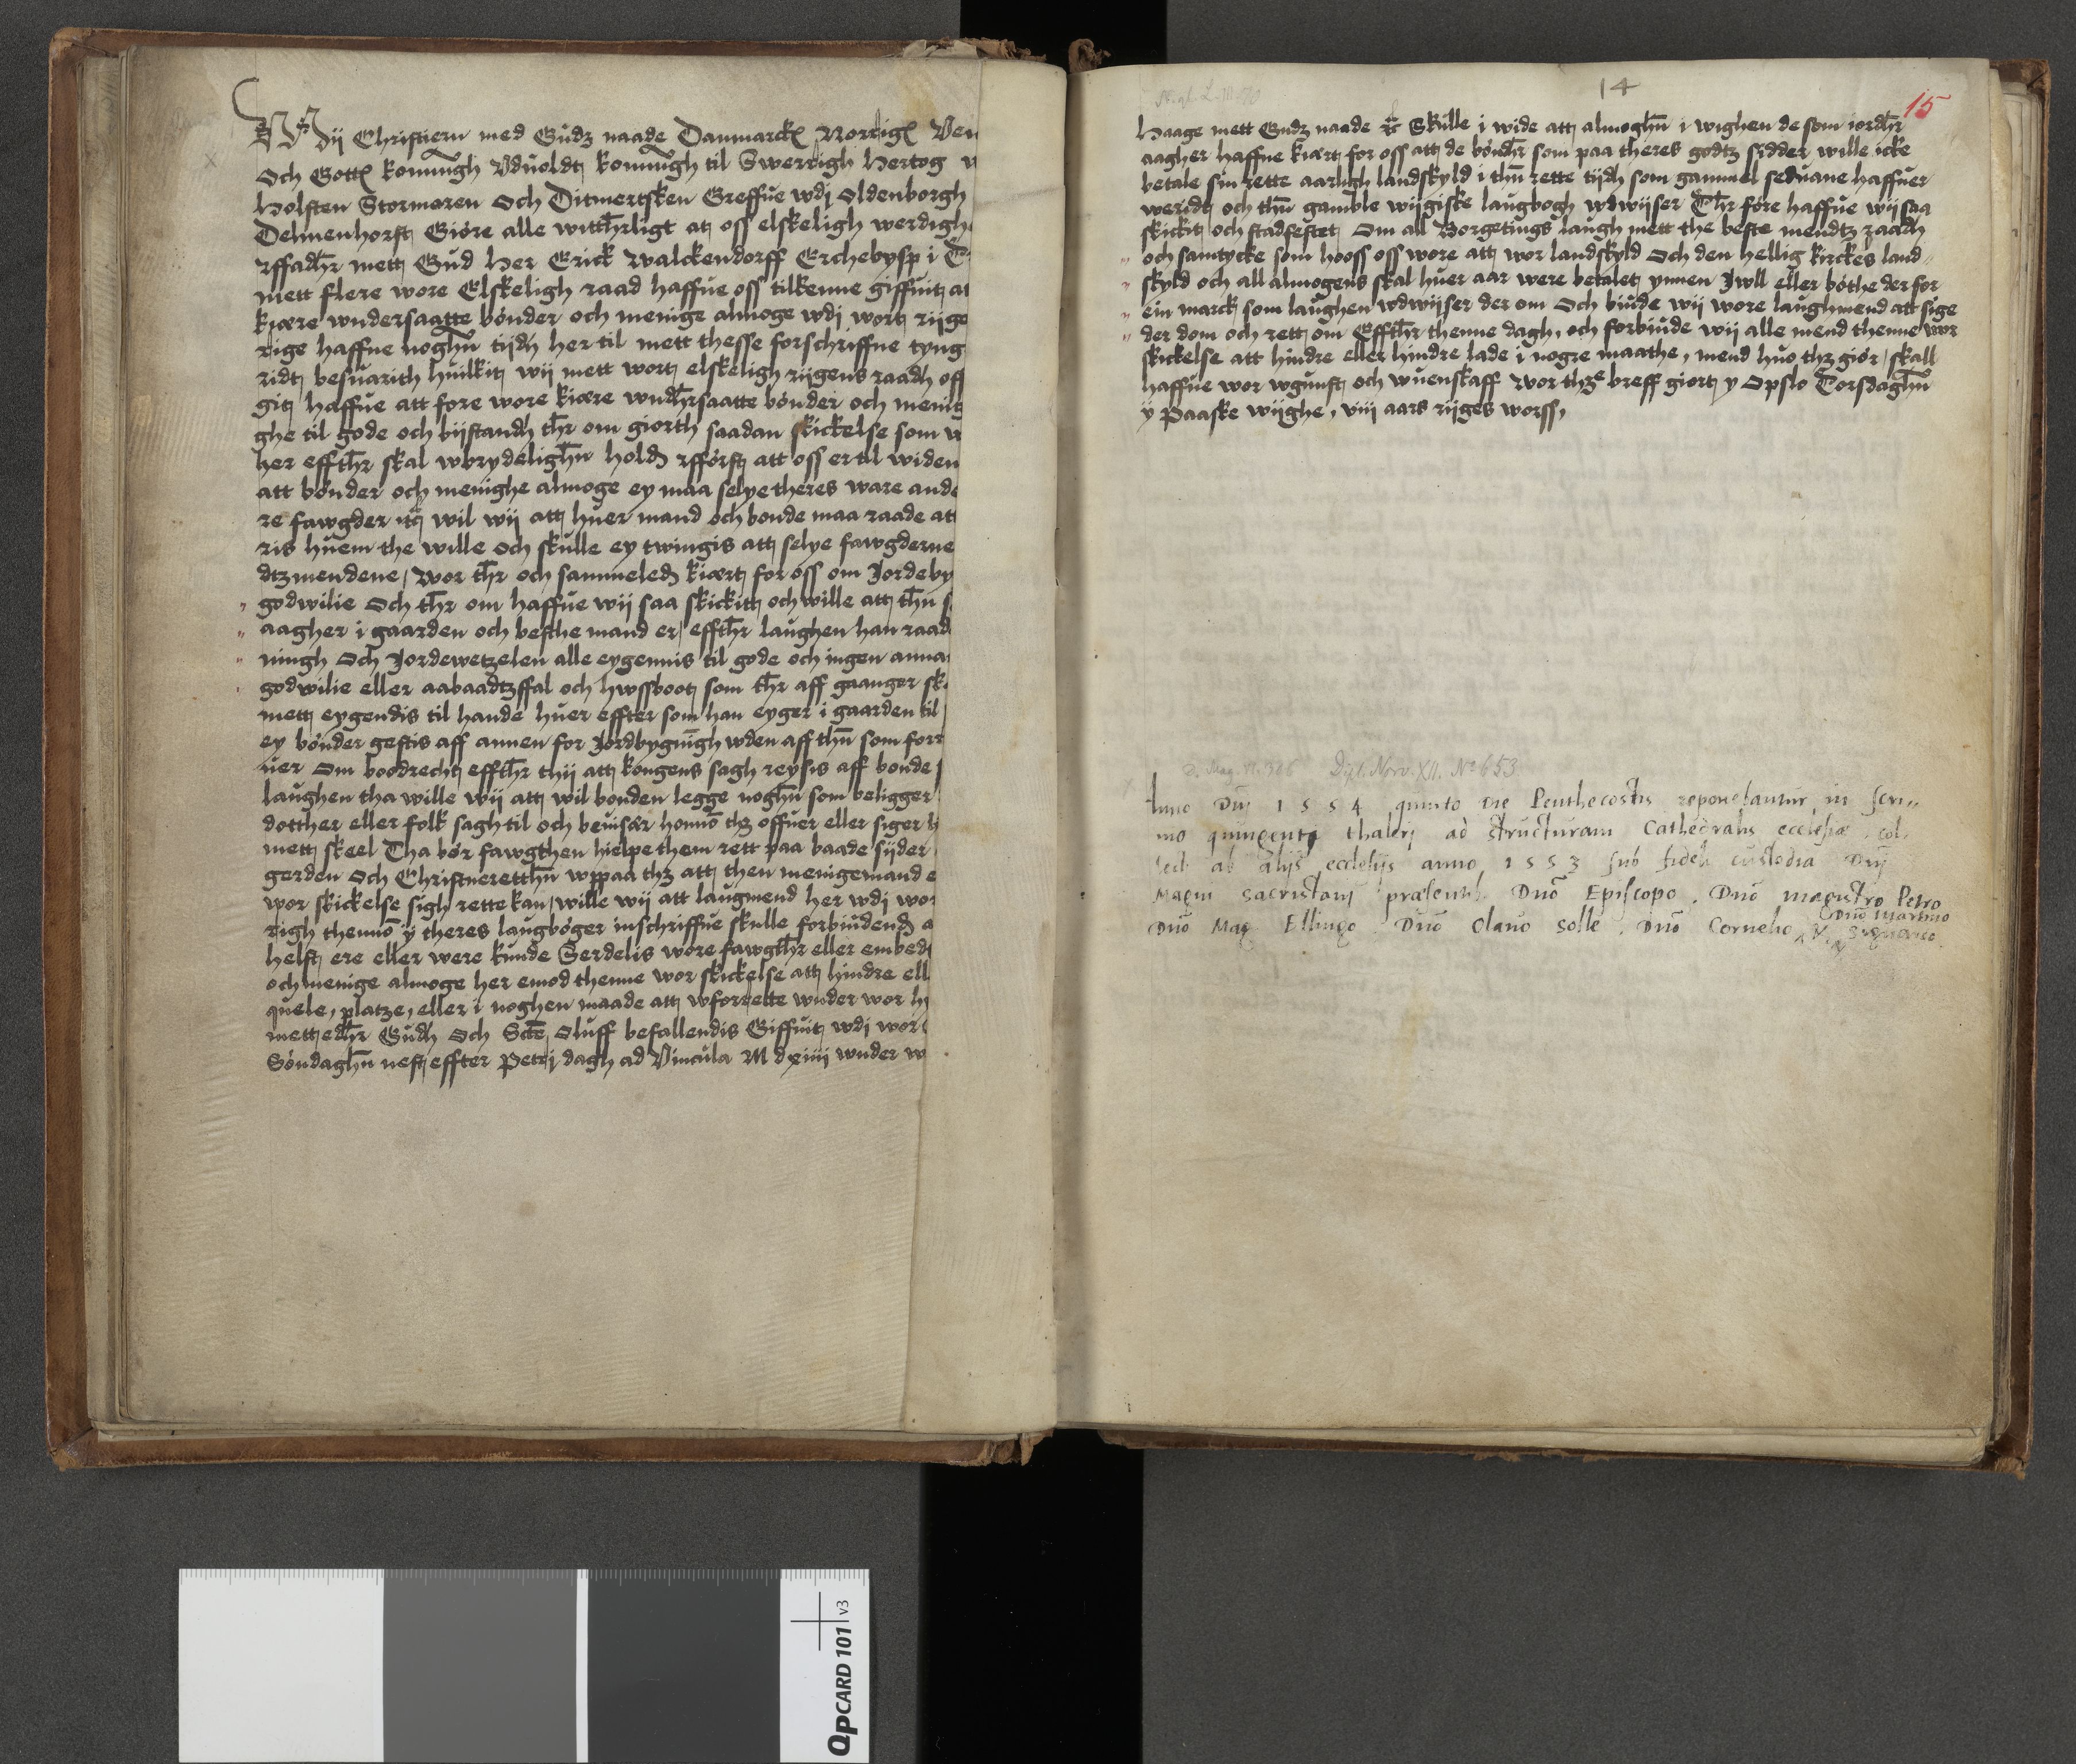 Wij Christiern med Gudz naade Danmarckꝭ Norrigꝭ Ven
Och Gottꝭ konnungh Vduoldt konnungh til Swerrigh Hertog
Holsten Stormaren Och Ditmertsken Greffue wdj Oldenborgh
Delmenhorst Giøre alle witthr̄ligt at oss elskeligh werdigh
rffadhr̄ mett Gud Her Erick Walckendorff Erchebysp i
mett flere wore Elskeligh raad haffue oss tilkenne giffuit at
kiære wndersaatte bønder och menige almoge wdj wort rijge
rige haffue noghn̄ tijdh her til mett thesse forschriffne tyng
ridt besuarith huilkit wij mett wort elskeligh rijgens raadh off
git haffue att fore wore kiære wndhr̄saatte bønder och menig
ghe til gode och bijstandh thr̄ om giorth saadan skickelse som
her effthr̄ skal wbrydelighn̄ holdꝭ rfførst att oss er til widen
att bønder och menighe almoge ey maa selye theres ware ande
re fawgder wil wij att huer mand och bonde maa raade att
ris huem the wille och skulle ey twingis att selye fawgderne
dtzmendene, Wor thr̄ och sammeledꝭ kiært for oss om Jordeby
godwilie Och thr̄ om haffue wij saa skickitt och wille att thn̄
aagher i gaarden och besthe mand er, effthr̄ laughen han raad
ningh Och Jordewetzelen alle eygennis til gode och ingen anna
godwilie eller aabaadtzffal och hwssboot som thr̄ aff gaanger sk
mett eygendis til hande huer effter som han eyger i gaarden til
ey bønder gestis aff annen for Jordbygnīgh wden aff thn̄ som forr
uer Om boodrecht effthr̄ thij att kongens sagh reysis aff bonde
laughen tha wille wij att wil bonden legge noghn̄ som beligger
dotther eller folk sagh til och beuisær honnō thz offuer eller siger
mett skeel Tha bør fawgthen hielpe them rett paa baade sijder
gerden Och Christneretthn̄ wppaa thz att then menigemand
wor skickelse sigh rette kan, wille wij att laugmend her wdj wor
righ thennō ÿ theres laugbøger inschriffue skulle forbiudendꝭ
helst ere eller were kunde Serdelis wore fawgthr̄ eller embed
och menige almoge her emod thenne wor skickelse att hindre ell
quele, platze, eller i noghen maade att wforrette wnder wor
mett edhr̄ Gudh Och Sctē Oluff befallendis Giffuit wdj wor
Søndaghn̄ nest effter Petrj dagh ad Vincula M d xiiij wnder
14
15
Haage mett Gudz naade ꝛc Skulle i wide att almoghn̄ i wighen de som iordhr̄
aagher haffue kiært for oss att de bøndhr̄ som paa theres godtz sidder wille icke
betale sin rette aarligh landskyld i thn̄ rette tijdh som gammel seduane haffuer
weridt och thn̄ gamble wijgiske laugbogh wdwijser Thr̄ føre haffue wij saa
skickit och stadfestet Om all Borgetings laugh mett the beste mendtz raadh
och samtycke som hooss oss wore att wor landskyld Och den hellig kirckes land
skyld och all almogens skal huer aar were betalet ynnen Jwll eller bøthe der for
ein marck som laughen wdwijser der om Och biude wij wore laughmend att sige
der dom och rett om Effthr̄ thenne dagh, och forbiude wij alle mend thenne wor
skickelse att hindre eller hindre lade i nogre maathe, mend huo thz giør, skall
haffue wor wgunst och wuenskaff Wor thz̄ breff giort y Opslo Torsdaghn̄
ÿ Paaske wijghe, viij aars rijges worss,
D. Mag. VI. 306 Dipl. Norv. XII. No 653
Anno Dnj 1554 quinto die Penthecostis reponebantur in scri
nio quingentj thalerj ad structuram Cathedralis ecclesiæ, col
lecti ab alijs ecclesijs anno 1553 sub fideli custodia Dnj
Magni sacristanj præsentib. Dnō Episcopo. Dnō magistro Petro
Dnō Mag Ellingo. Dnō Olauo Solle. Dnō Cornelio
Dnō Martino
OpCARD 101 v3